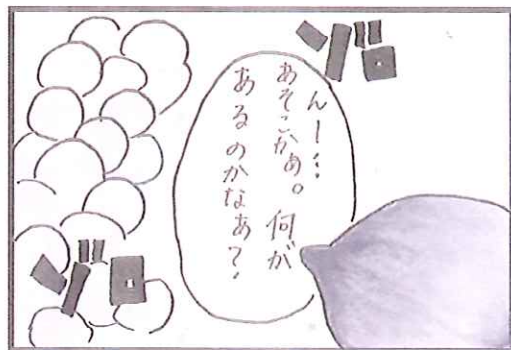 ゾロ
んー…
あそこかぁ。何が
あるのかなあ?
ゾロ